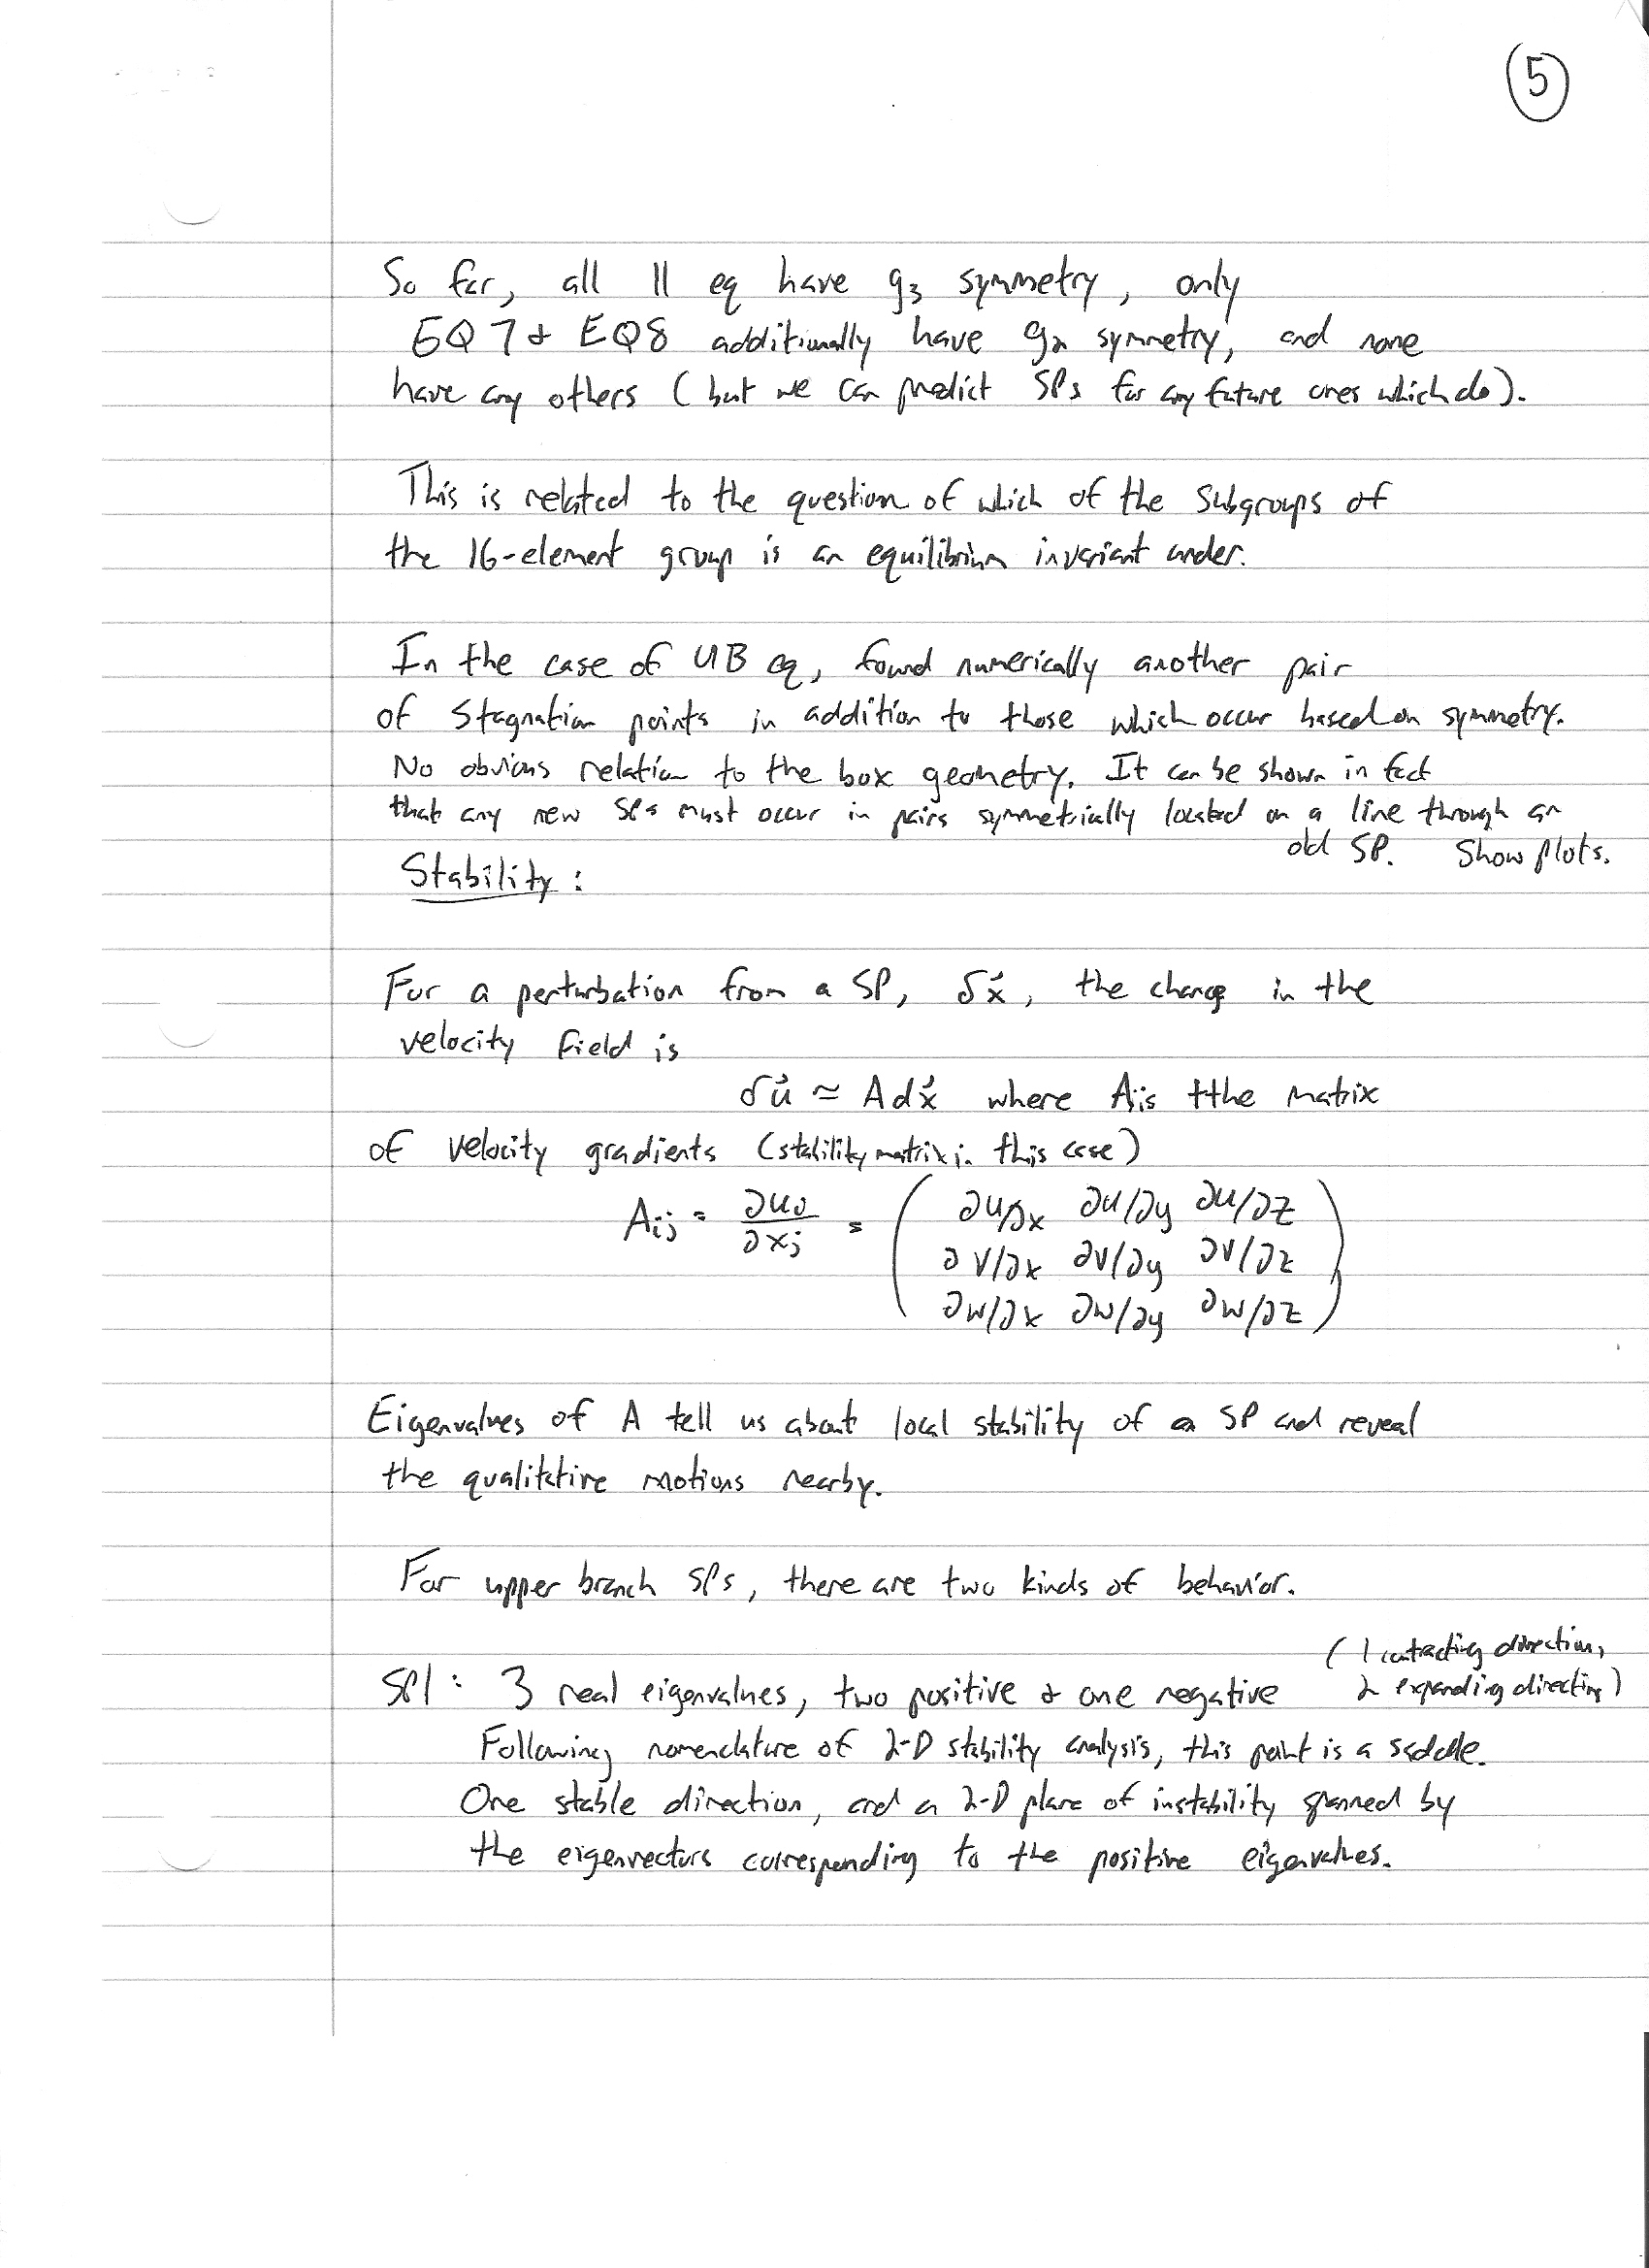 5
So far, all 11 eq have g₃ symmetry, only
EQ7 & EQ8 additionally have g₂ symmetry, and none
have any others (but we can predict SPs for any future ones which do).
This is related to the question of which of the subgroups of
the 16-element group is an equilibrium invariant under.
In the case of UB eq, found numerically another pair
of stagnation points in addition to those which occur based on symmetry.
No obvious relation to the box geometry. It can be shown in fact
that any new SPs must occur in pairs symmetrically located on a line through an
old SP. Show plots.
Stability:
For a perturbation from a SP, δx⃗, the change in the
velocity field is
δu⃗ ≈ Adx⃗ where A is the matrix
of velocity gradients (stability matrix in this case)
Aij = ∂ui/∂xj = ( ∂u/∂x ∂u/∂y ∂u/∂z
∂v/∂x ∂v/∂y ∂v/∂z
∂w/∂x ∂w/∂y ∂w/∂z )
Eigenvalues of A tell us about local stability of a SP and reveal
the qualitative motions nearby.
For upper branch SPs, there are two kinds of behavior.
(1 contracting direction,
SP1: 3 real eigenvalues, two positive & one negative 2 expanding directions)
Following nomenclature of 2-D stability analysis, this point is a saddle.
One stable direction, and a 2-D plane of instability spanned by
the eigenvectors corresponding to the positive eigenvalues.